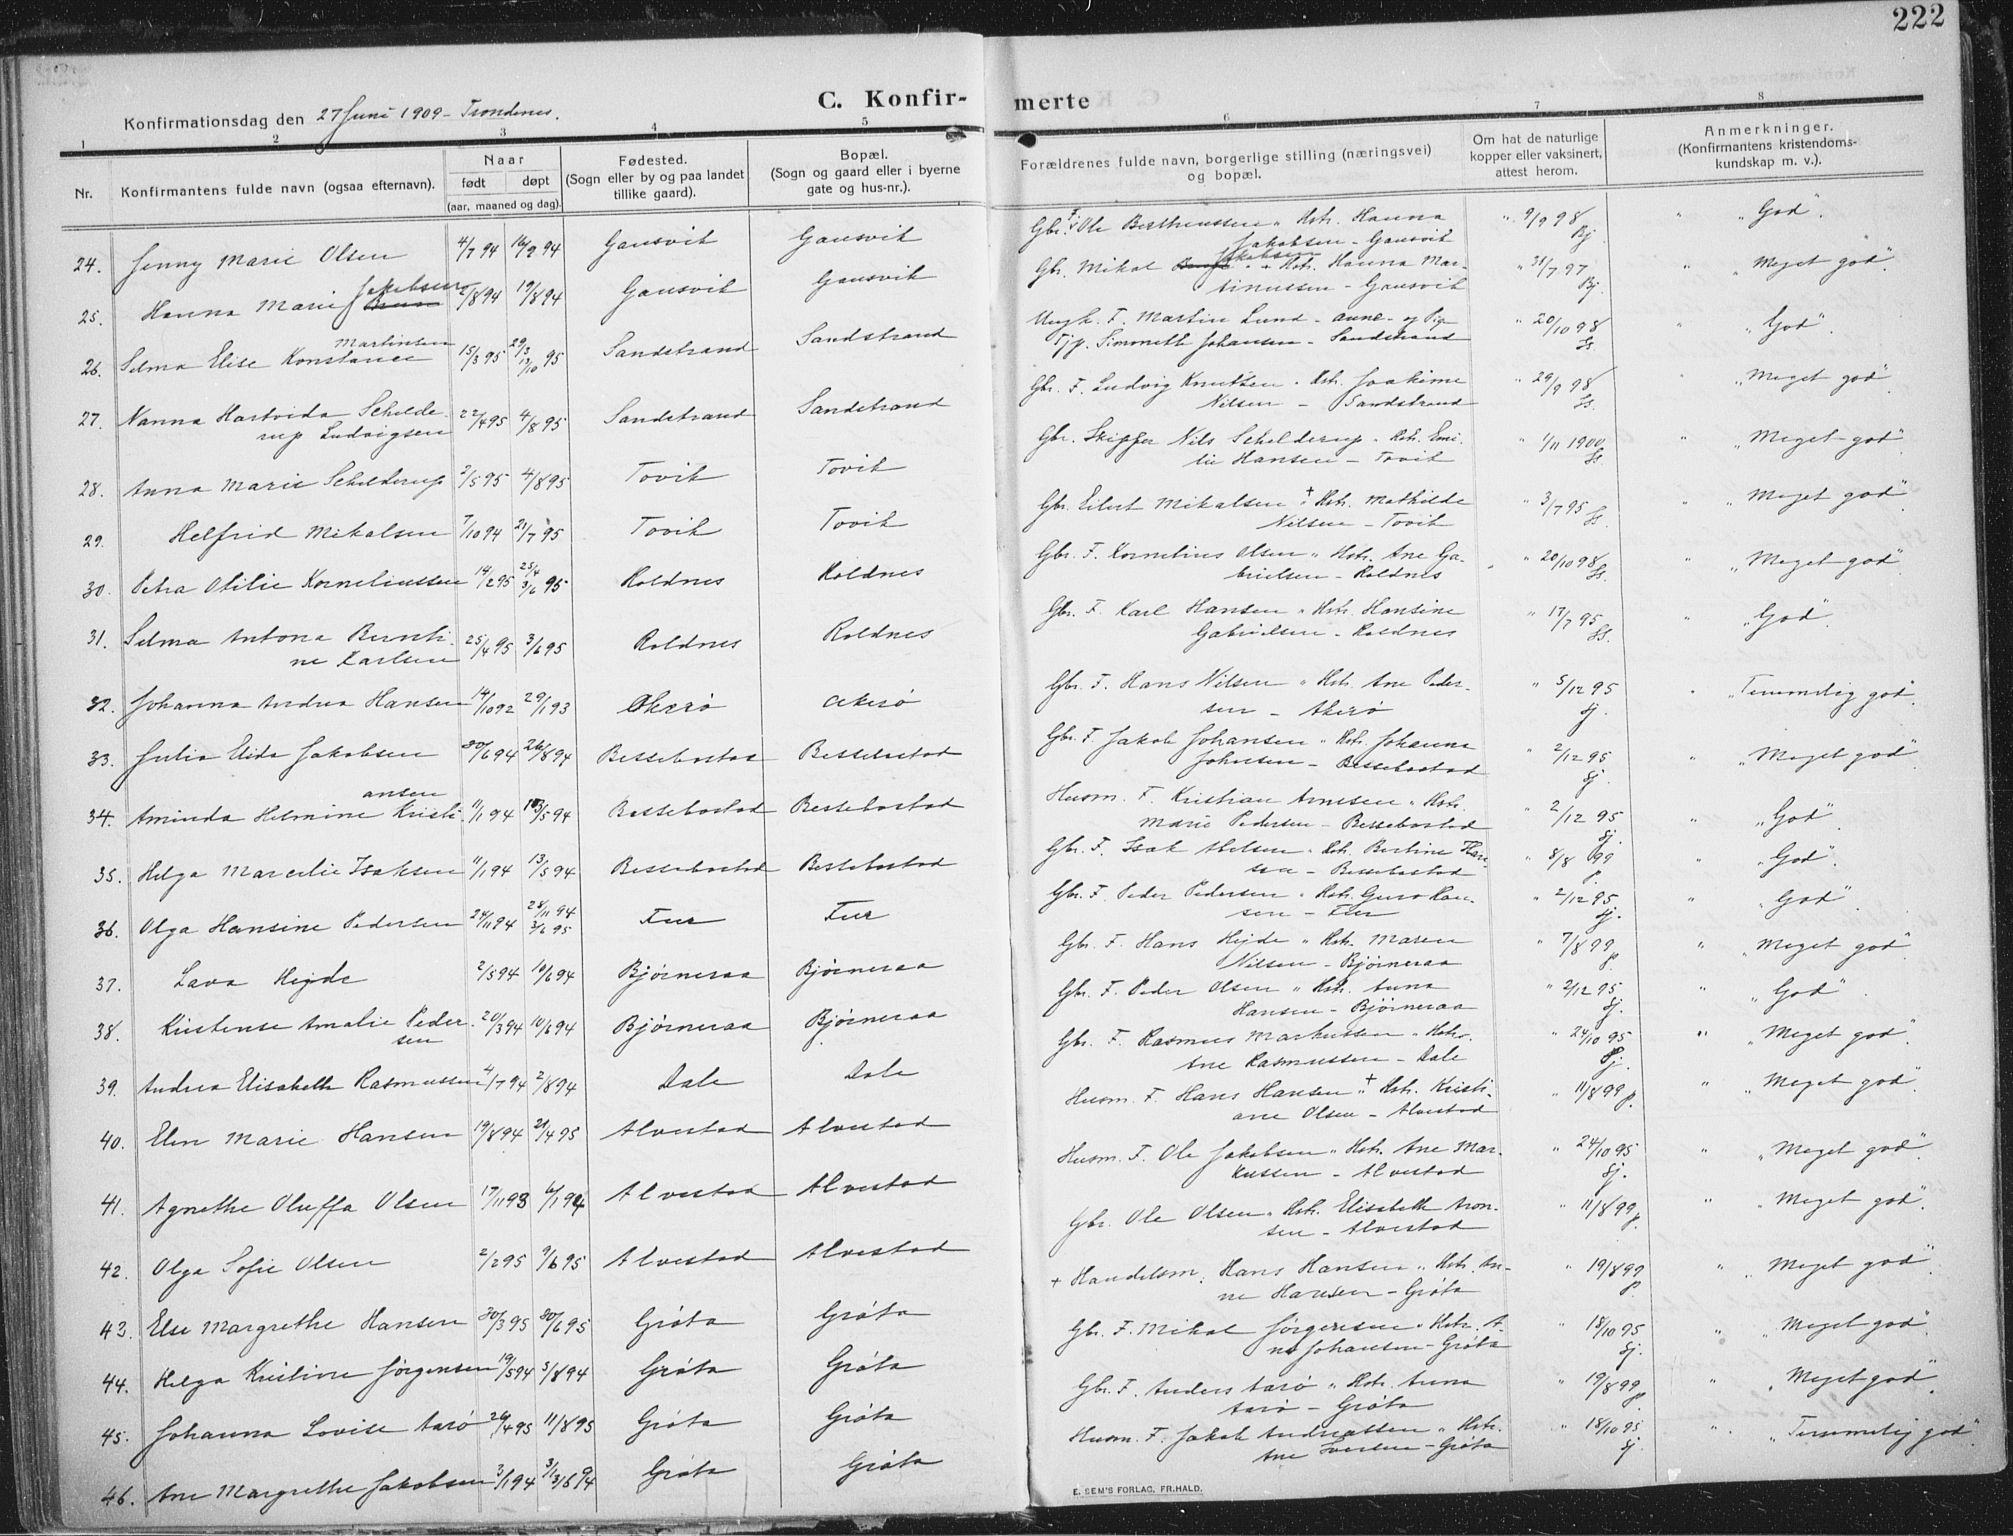 222
C. Konfir- merte
Konfirmationsdag den 27 Juni 1909 - Trondenes.
1 2 3 4 5 6 7 8
Nr. Konfirmantens fulde navn (ogsaa efternavn). Naar født døpt (aar, maaned og dag). Fødested. (Sogn eller by og paa landet tillike gaard). Bopæl. (Sogn og gaard eller i byerne gate og hus-nr.). Forældrenes fulde navn, borgerlige stilling (næringsvei) og bopæl. Om hat de naturlige kopper eller vaksinert, attest herom. Anmerkninger. (Konfirmantens kristendoms- kundskap m. v.).
24. Jenny Marie Olsen 4/7 94 16/9 94 Gausvik Gausvik Gbr. F. Ole Bertheussen " Hstr. Hanna " 9/9 98 " "God".
Jakobsen - Gausvik Bj
25. Hanna Marie Jakobsen 2/8 94 19/8 94 Gausvik Gausvik Gbr. Mikal Jakobsen " Hstr. Hanna Mar- " 31/7 97 " "Meget god".
tinussen - Gausvik Bj.
26. Selma Elise Konstance Martinsen 15/3 95 29/3 13/10 95 Sandstrand Sandstrand Ungk. F. Martin Lund - anne- og Pige " 20/10 98 " "God".
Tjp. Simmeth Johansen - Sandstrand Ss.
27. Nanna Hartvida Schilde- 22/4 95 4/8 95 Sandstrand Sandstrand Gbr. F. Ludvig Knutsen " Hstr. Joakime " 29/9 98 "Meget god".
rup Ludvigsen Nilsen - Sandstrand Ss.
28. Anna Marie Schilderup 2/5 95 4/8 95 Tovik Tovik Gbr. Skipper Nils Schelderup " Hstr. Emi- " 1/11 1900 " "Meget god".
lie Hansen - Tovik Ss.
29. Helfrid Mikalsen 7/10 94 21/7 95 Tovik Tovik Gbr. Eilert Mikalsen " + Hstr. Mathilde " 3/7 95 " "Meget god".
Nilsen - Tovik Ss.
30. Petra Otilie Korneliussen 14/2 95 25/4 3/6 95 Roldnes Roldnes Gbr. F. Kornelius Olsen " Hstr. Ane Ga- " 20/10 98 " "Meget god".
brielsen - Roldnes Ss.
31. Selma Antona Bernti- 25/4 95 3/6 95 Roldnes Roldnes Gbr. F. Karl Hansen " Hstr. Hansine " 17/7 95 " "God".
ne Karlsen Gabrielsen - Roldnes Ss.
32. Johanna Andrea Hansen 14/10 92 29/1 93 Akerø Akerø Gbr. F. Hans Nilsen " Hstr. Ane Peder- " 5/12 95 " "Temmelig god".
sen - Akerø Sj.
33. Julia Elida Jakobsen 30/6 94 26/8 94 Bessebostad Bessebostad Gbr. F. Jakob Johansen " Hstr. Johanna " 2/12 95 " "Meget god".
Johnsen - Bessebostad Sj.
34. Aminda Helmine Kristi- ansen 11/1 94 13/5 94 Bessebostad Bessebostad Husm. F. Kristian Arnesen " Hstr. " 2/12 95 " "God".
Marie Pedersen - Bessebostad Sj
35. Helga Marcelie Isaksen 11/1 94 13/5 94 Bessebostad Bessebostad Gbr. F. Isak Nilsen " Hstr. Bertine Han- " 8/8 99 " "God".
sen - Bessebostad P.
36. Olga Hansine Pedersen 24/11 94 28/11 94 3/6 95 Fur Fur Gbr. F. Peder Pedersen " Hstr. Guro Han- " 2/12 95 " "God".
sen - Fur Sj.
37. Lava Hejde 2/5 94 10/6 94 Bjørneraa Bjørneraa Gbr. F. Hans Hejde " Hstr. Maren " 7/8 99 " "Meget god".
Nilsen - Bjørneraa P.
38. Kristense Amalie Peder- 20/3 94 10/6 94 Bjørneraa Bjørneraa Gbr. F. Peder Olsen " Hstr. Anna " 2/12 95 " "God".
sen Hansen - Bjørneraa Sj.
39. Andrea Elisabeth Rasmussen 4/7 94 2/8 94 Dale Dale Gbr. F. Rasmus Markussen " Hstr. " 24/10 95 " "Meget god".
Ane Rasmussen - Dale Sj.
40. Elen Marie Hansen 19/8 94 21/4 95 Alvestad Alvestad Husm. F. Hans Hansen " + Hstr. Kristi- " 11/8 99 P. " "Meget god".
ane Olsen - Alvestad
41. Agnethe Oluffa Olsen 17/11 93 6/1 94 Alvestad Alvestad Husm. F. Ole Jakobsen " Hstr. Ane Mar- " 24/10 95 " "Meget god".
kussen - Alvestad Sj.
42. Olga Sofie Olsen 2/2 95 9/6 95 Alvestad Alvestad Gbr. Ole Olsen " Hstr. Elisabeth Aron- " 11/8 99 P. " "Meget god".
sen - Alvestad
43. Else Margrethe Hansen 30/3 95 30/6 95 Grøta Grøta + Handelsm. Hans Hansen " Hstr. An- " 19/8 99 " "Meget god".
ne Hansen - Grøta P.
44. Helga Kristine Jørgensen 19/5 94 3/8 94 Grøta Grøta Gbr. F. Mikal Jørgensen " Hstr. A- " 18/10 95 " "Meget god".
ne Johansen - Grøta Sj.
45. Johanna Lovise Aarø 26/4 95 11/8 95 Grøta Grøta Gbr. F. Anders Aarø " Hstr. Anna " 19/8 99 " "Meget god".
Aarø - Grøta P.
46. Ane Margrethe Jakobsen 3/1 94 3/1 3/6 94 Grøta Grøta Husm. F. Jakob Andreassen " Hstr. " 18/10 95 " "Temmelig god".
Ane Iversen - Grøta Sj
E. SEM'S FORLAG, FR.HALD.